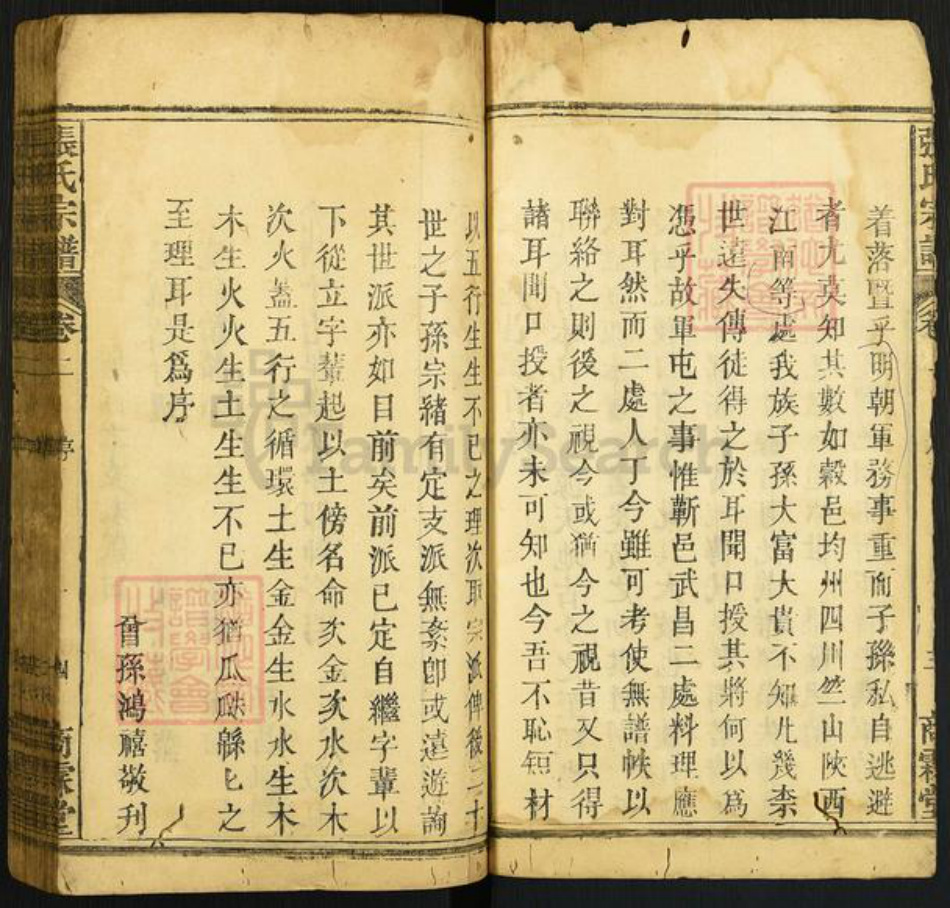 張氏宗譜
着落暨乎明朝軍務事重而子孫私自逃避
者尤莫知其數如榖邑均州四川竺山陜西
江南等處我族子孫大富大貴不知凡幾柰
世遠失傳徒得之於耳聞口授其將何以為
憑乎故軍屯之事惟蘄邑武昌二處料理應
對耳然而二處人丁今雖可考使無譜帙以
聯絡之則後之視今或猶今之視昔又只得
諸耳聞口授者亦未可知也今吾不恥短材
以五行生生不已之理次取宗派俾後二十
世之子孫宗緒有定支派無紊卽或遠遊詢
其世派亦如目前矣前派已定自繼字輩以
下從立字輩起以土傍名命次金次水次木
次火蓋五行之循環土生金金生水水生木
木生火火生土生生不已亦猶瓜瓞緜七之
至理耳是為序
曾孫鴻禧敬刊
張氏宗譜 卷二 序 四 商霖堂
FamilySearch